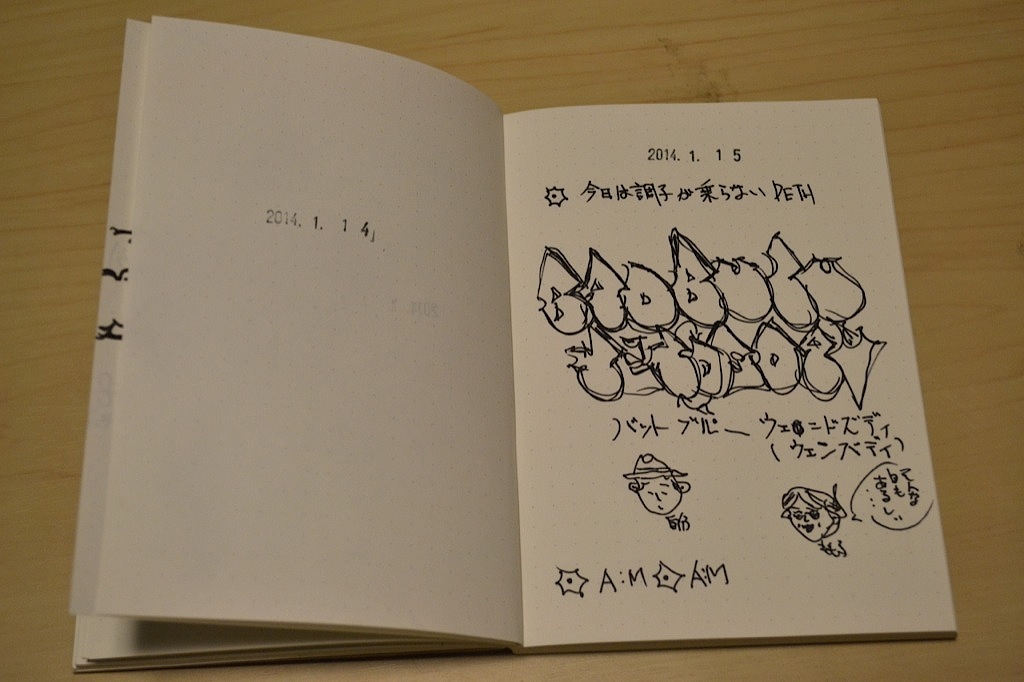 2014. 1. 1 4
2014. 1. 1 5
今日は調子が乗らない PETH
BAD BULU
バットブルー ウェーンドズディ
(ウェンズディ)
そんな
日も
あるし
A:M A:M